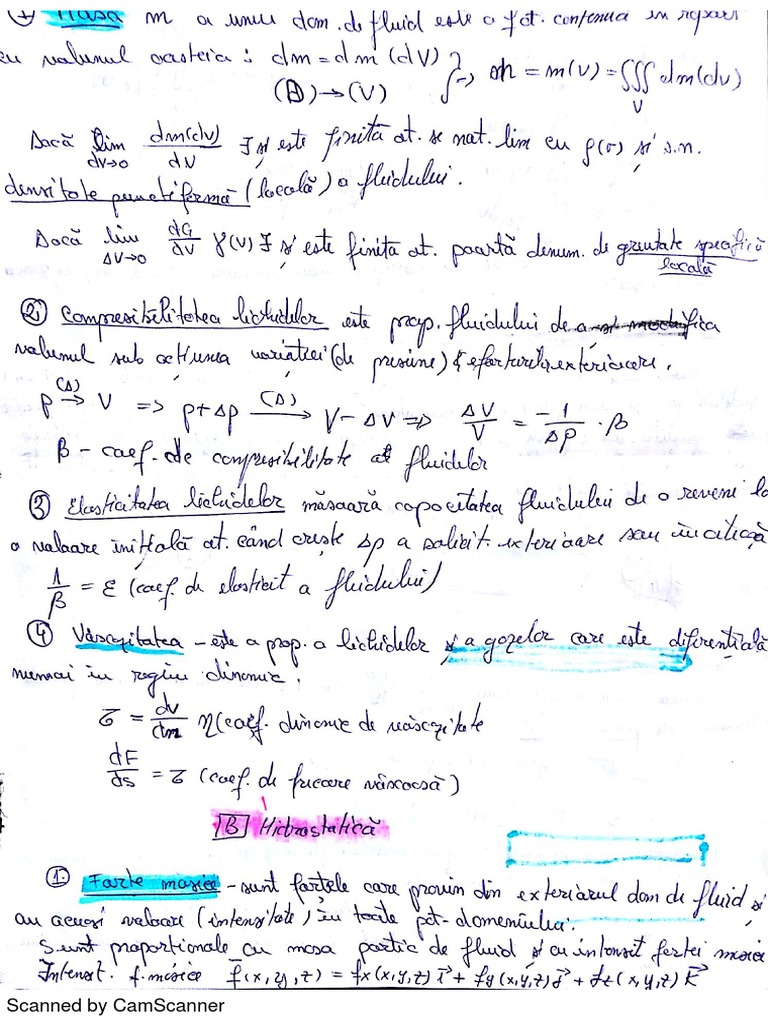 ① Masa m a unui dom. de fluid este o fct. continua in raport
cu volumul acesteia : dm = dm (dV) } ∫ → m = m(V) = ∭ dm(dv)
(D) → (V) V
Dacă lim dv→0 dm(dv)/dv ∃ și este finită at. se nat. lim cu ρ(v) și s.n.
densitate punctiformă (locală) a fluidului.
Dacă lim ΔV→0 dG/dV γ(v) ∃ și este finita at. poartă denum. de greutate specifică
locală
② Compresibilitatea lichidelor este prop. fluidului de a-și modifica
volumul sub acțiunea variatiei (de presiune) eforturilor exterioare.
p (Δ)→ V => p+Δp (Δ)→ V-ΔV => ΔV/V = -1/Δp · β
β - coef. de compresibilitate al fluidelor
③ Elasticitatea lichidelor măsoară capacitatea fluidului de a reveni la
o valoare inițială at. când crește Δp a solicit. exterioare sau
1/β = ε (coef. de elasticit a fluidului)
④ Vâscozitatea - este a prop. a lichidelor și a gazelor care este diferențială
numai în regim dinamic.
τ = dv/dn η (coef. dinamic de vâscozitate
dF/ds = τ (coef. de frecare vâscoasă)
B Hidrostatică
1. Forte masice - sunt forțele care provin din exteriorul dom de fluid și
au aceeași valoare (intensitate) în toate pct. domeniului.
Sunt proportionale cu masa partic de fluid și cu intensit fortei masice
Intensit. f. masice f̄(x,y,z) = fx(x,y,z) i⃗ + fy(x,y,z) j⃗ + fz(x,y,z) k⃗
Scanned by CamScanner